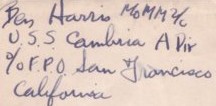 Ben Harris MoMM 2/c
U.S.S. Cambria A Div
c/o F.P.O. San Francisco
California